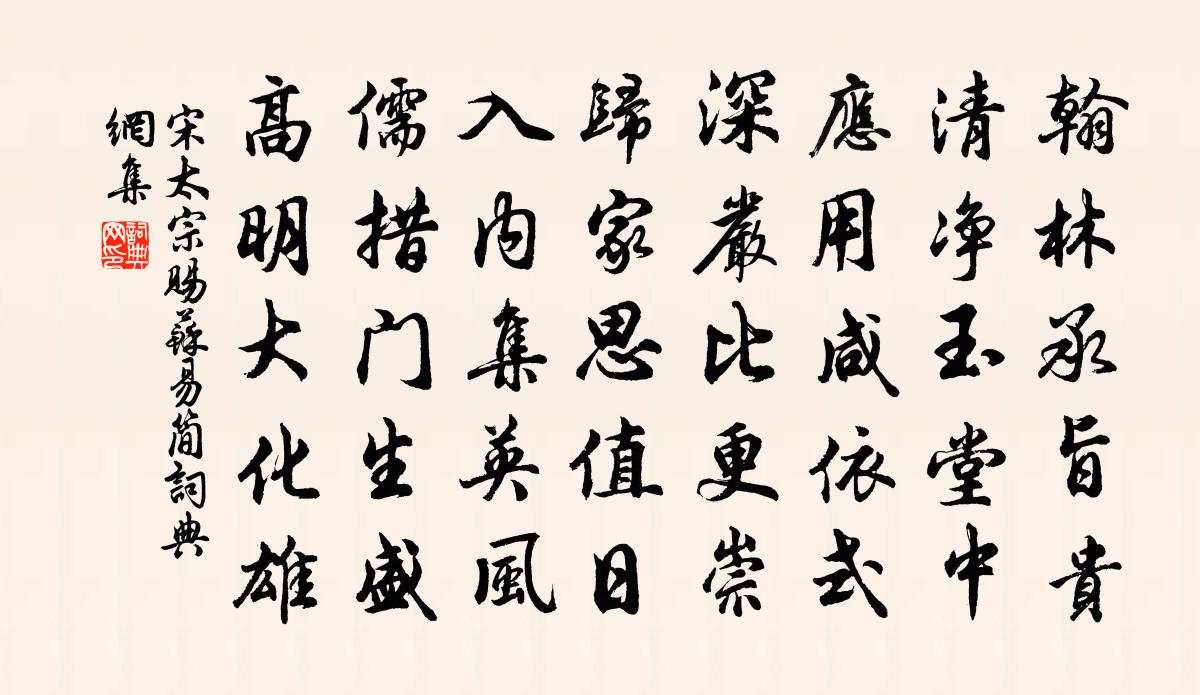 翰林承旨貴
清净玉堂中
應用咸依式
深嚴比更崇
歸家思值日
入内集英風
儒措门生盛
高明大化雄
宋太宗賜蘇易簡詞典
網集
詞典网印